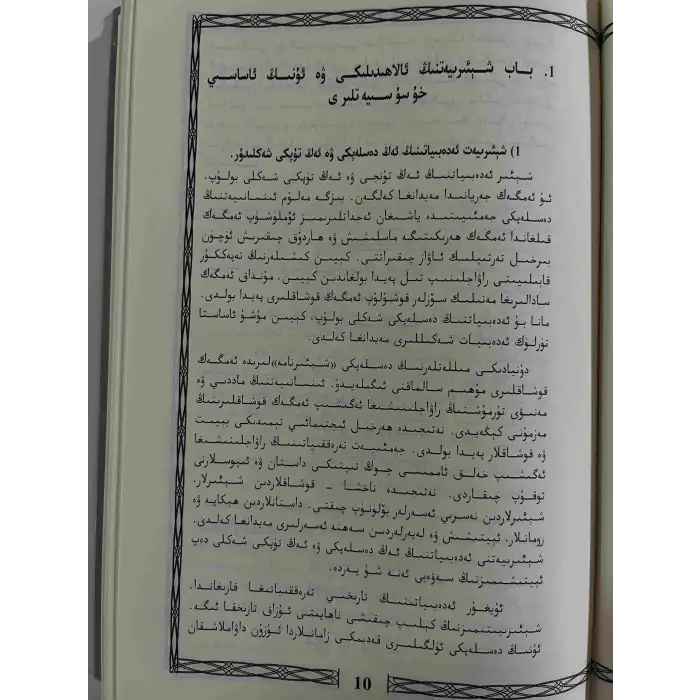 1. باب شېئىرىيەتنىڭ ئالاھىدىلىكى ۋە ئۇنىڭ ئاساسىي
خۇسۇسىيەتلىرى
1) شېئىرىيەت ئەدەبىياتنىڭ ئەڭ دەسلەپكى ۋە ئەڭ تۈپكى شەكلىدۇر.
شېئىر ئەدەبىياتنىڭ ئەڭ تۇنجى ۋە ئەڭ تۈپكى شەكلى بولۇپ،
ئۇ ئەمگەك جەريانىدا مەيدانغا كەلگەن. بىزگە مەلۇم ئىنسانىيەتنىڭ
دەسلەپكى جەمئىيىتىدە ياشىغان ئەجداتلىرىمىز ئۆملۈشۈپ ئەمگەك
قىلغاندا ئەمگەك ھەرىكىتىگە ماسلىشىش ۋە ھاردۇق چىقىرىش ئۈچۈن
بىرخىل تەرتىپلىك ئاۋاز چىقىراتتى. كېيىن كىشىلەرنىڭ تەپەككۇر
قابىلىيىتى راۋاجلىنىپ تىل پەيدا بولغاندىن كېيىن، مۇنداق ئەمگەك
سادالىرىغا مەنىلىك سۆزلەر قوشۇلۇپ ئەمگەك قوشاقلىرى پەيدا بولدى.
مانا بۇ ئەدەبىياتنىڭ دەسلەپكى شەكلى بولۇپ، كېيىن مۇشۇ ئاساستا
تۈرلۈك ئەدەبىيات شەكىللىرى مەيدانغا كەلدى.
دۇنيادىكى مىللەتلەرنىڭ دەسلەپكى «شېئىرنامە»لىرىدە ئەمگەك
قوشاقلىرى مۇھىم سالماقنى ئىگىلەيدۇ. ئىنسانىيەتنىڭ ماددىي ۋە
مەنىۋى تۇرمۇشنىڭ راۋاجلىنىشىغا ئەگىشىپ ئەمگەك قوشاقلىرىنىڭ
مەزمۇنى كېڭەيدى. نەتىجىدە ھەرخىل ئىجتىمائىي تېمىدىكى بېيىت
ۋە قوشاقلار پەيدا بولدى. جەمئىيەت تەرەققىياتىنىڭ راۋاجلىنىشىغا
ئەگىشىپ خەلق ئاممىسى چوڭ تىپتىكى داستان ۋە ئېپوسلارنى
توقۇپ چىقاردى. نەتىجىدە ناخشا - قوشاقلاردىن شېئىرلار،
شېئىرلاردىن نەسرىي ئەسەرلەر بۆلۈنۈپ چىقتى. داستانلاردىن ھېكايە ۋە
رومانلار، ئېيتىشىش ۋە لەپەرلەردىن سەھنە ئەسەرلىرى مەيدانغا كەلدى.
شېئىرىيەتنى ئەدەبىياتنىڭ ئەڭ دەسلەپكى ۋە ئەڭ تۈپكى شەكلى دەپ
ئېيتىشىمىزنىڭ سەۋەبى ئەنە شۇ يەردە.
ئۇيغۇر ئەدەبىياتىنىڭ تارىخىي تەرەققىياتىغا قارىغاندا،
شېئىرىيىتىمىزنىڭ كېلىپ چىقىشى ناھايىتى ئۇزاق تارىخقا ئىگە.
ئۇنىڭ دەسلەپكى ئۈلگىلىرى قەدىمكى زامانلاردا ئۇزۇن داۋاملاشقان
10